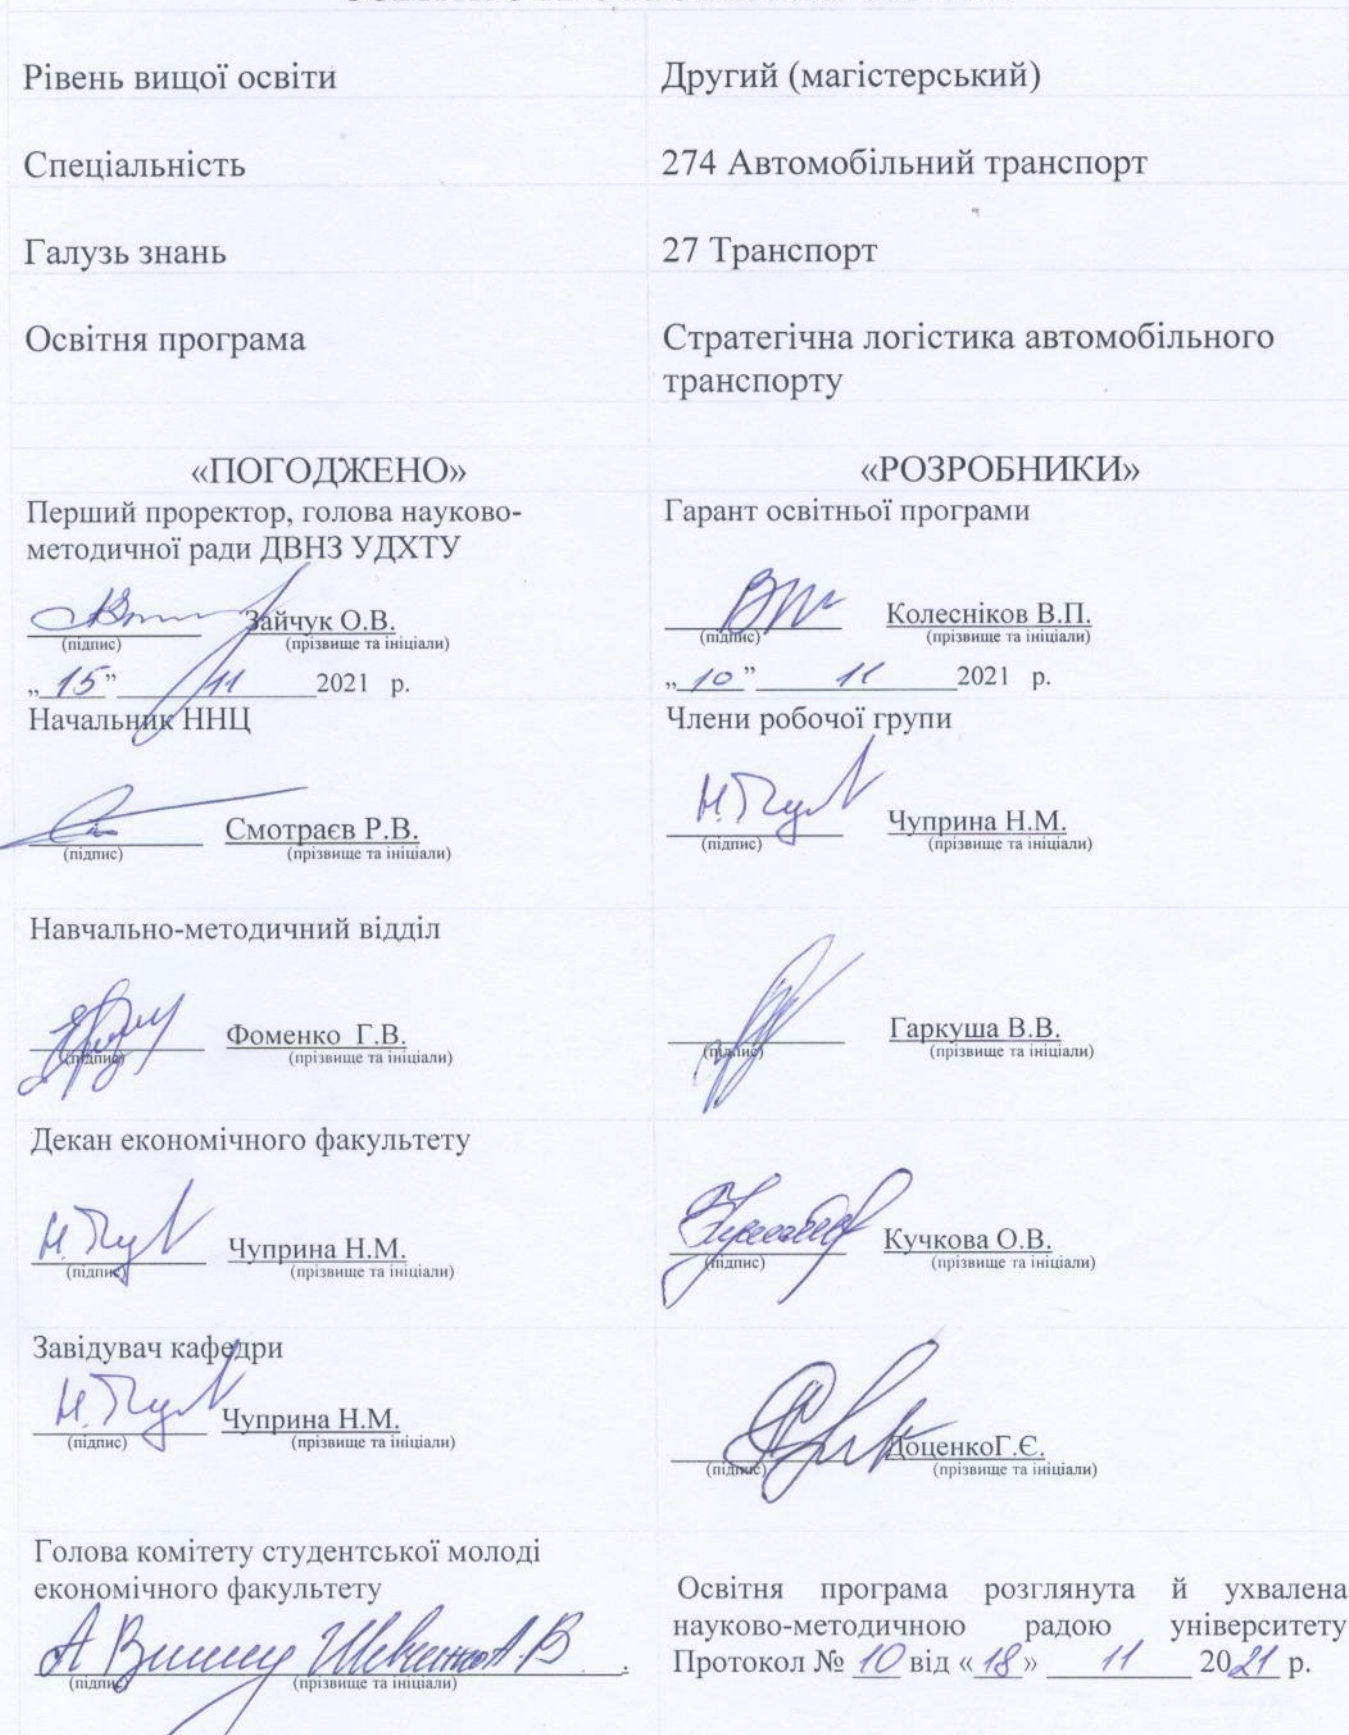 Рівень вищої освіти
Другий (магістерський)
Спеціальність
274 Автомобільний транспорт
Галузь знань
27 Транспорт
Освітня програма
Стратегічна логістика автомобільного
транспорту
«ПОГОДЖЕНО»
Перший проректор, голова науково-
методичної ради ДВНЗ УДХТУ
Зайчук О.В.
(підпис) (прізвище та ініціали)
„ 15 ” 11 2021 р.
Начальник ННЦ
Смотраєв Р.В.
(підпис) (прізвище та ініціали)
Навчально-методичний відділ
Фоменко Г.В.
(підпис) (прізвище та ініціали)
Декан економічного факультету
Чуприна Н.М.
(підпис) (прізвище та ініціали)
Завідувач кафедри
Чуприна Н.М.
(підпис) (прізвище та ініціали)
Голова комітету студентської молоді
економічного факультету
Шевченко А.В
(підпис) (прізвище та ініціали)
«РОЗРОБНИКИ»
Гарант освітньої програми
Колесніков В.П.
(підпис) (прізвище та ініціали)
„ 10 ” 11 2021 р.
Члени робочої групи
Чуприна Н.М.
(підпис) (прізвище та ініціали)
Гаркуша В.В.
(підпис) (прізвище та ініціали)
Кучкова О.В.
(підпис) (прізвище та ініціали)
ДоценкоГ.Є.
(підпис) (прізвище та ініціали)
Освітня програма розглянута й ухвалена
науково-методичною радою університету
Протокол № 10 від « 18 » 11 2021 р.